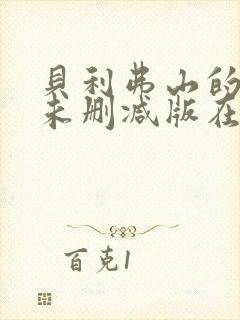 貝利弗山的
未删减版在
百克1